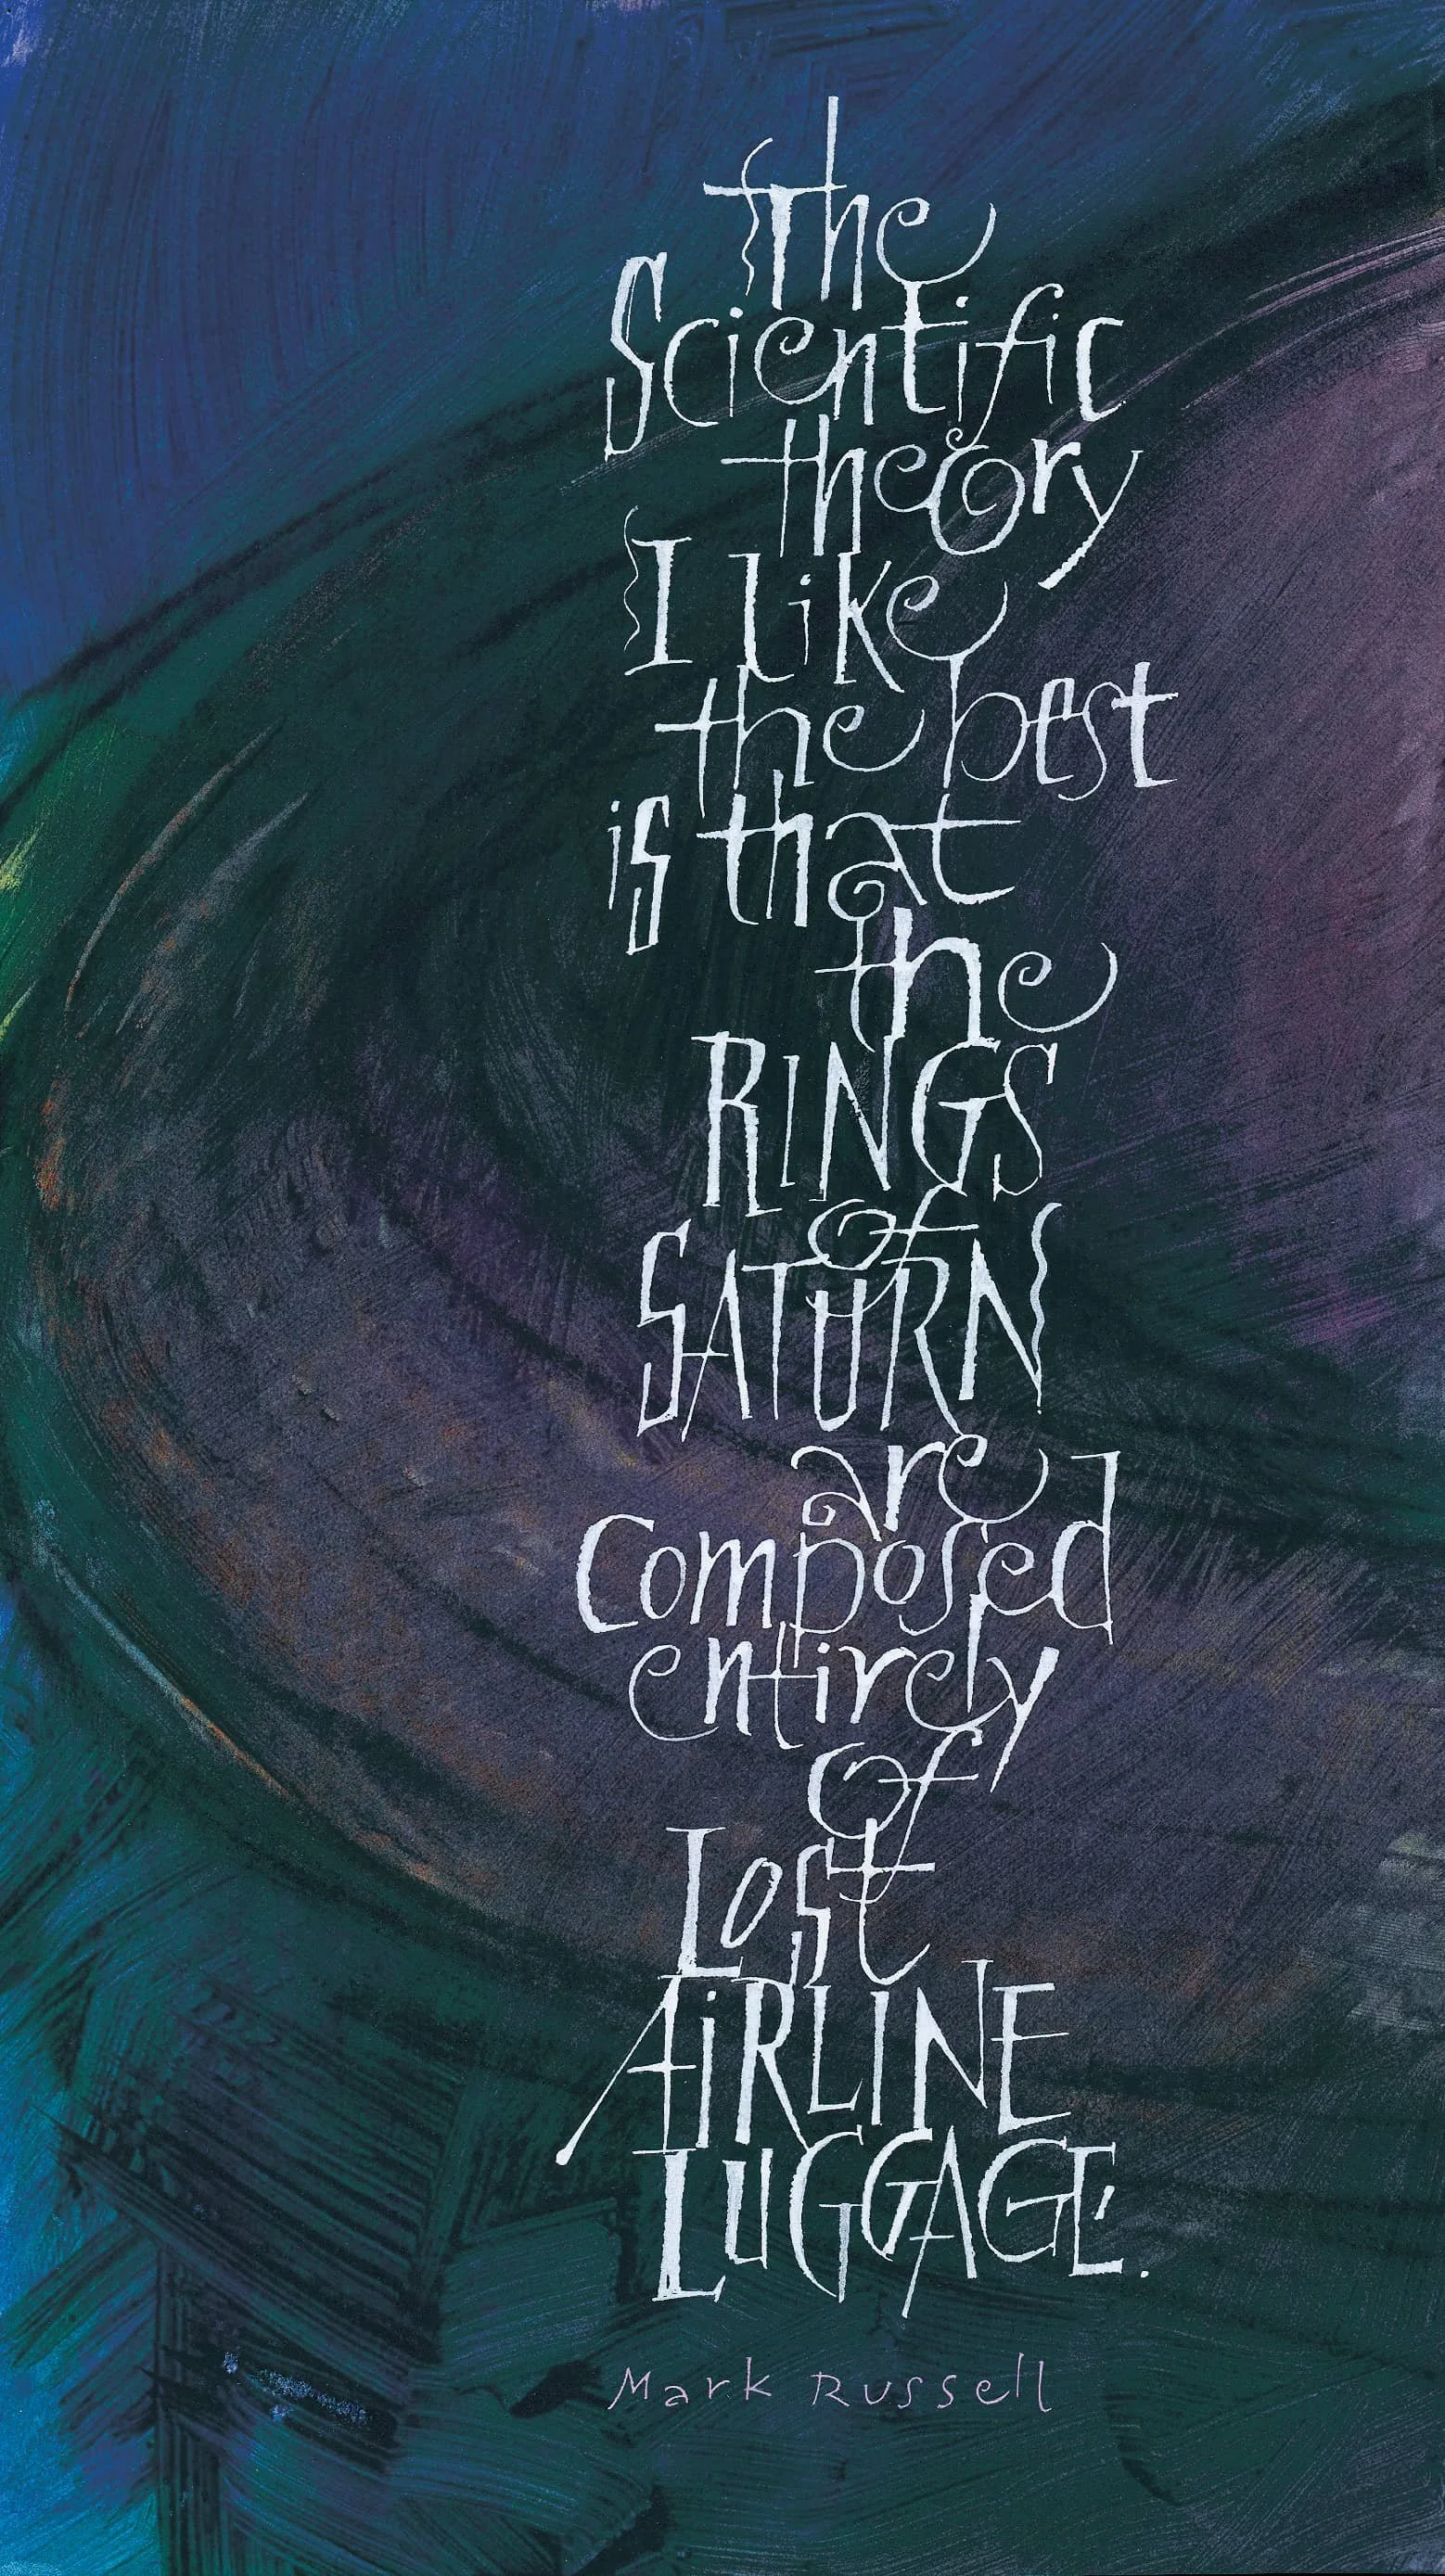 the
Scientific
theory
I like
the best
is that
the
RINGS
of
SATURN
are
composed
entirely
of
Lost
AiRLINE
LUGGAGE.
Mark Russell